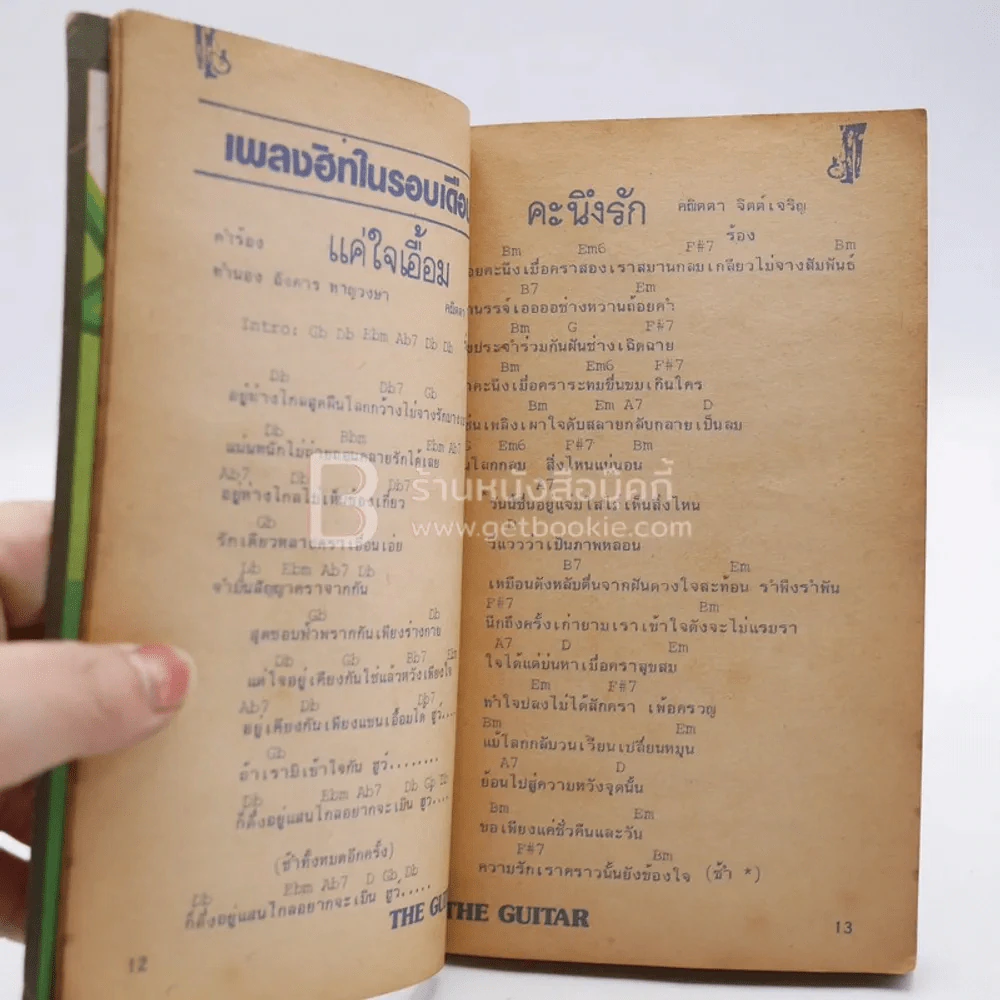 เพลงฮิทในรอบเดือน
แค่ใจเอื้อม
คำร้อง
ทำนอง อังคาร หาญวงษา
คณิตตา
Intro: Gb Db Ebm Ab7 Db Db
Db Db7 Gb
อยู่ห่างไกลสุดผืนโลกกว้างไม่จางรัก
Db Bbm Ebm Ab7
แม้นหนักไม่
Ab7 Db Db7
อยู่ห่างไกล
Gb
รักเดียว
Db Ebm Ab7 Db
จำมั่นสัญญาคราจากกัน
Gb Db
สุดขอบฟ้าพรากกันเพียงร่างกาย
Db Gb Bb7 Ebm
แต่ใจอยู่เคียงกันใช่แล้วหวังเพียงใจ
Ab7 Db Db7
อยู่เคียงกันเพียงแขนเอื้อมได้ ฮูว์....
Gb
ถ้าเรามิเข้าใจกัน ฮูว์........
Db Ebm Ab7 Db Gb Db
ก็ดึงอยู่แสนไกลอยากจะเมิน ฮูว์....
(ซ้ำทั้งหมดอีกครั้ง)
Db Ebm Ab7 D Gb Db
ก็ดึงอยู่แสนไกลอยากจะเมิน ฮูว์.....
THE GU
12
คะนึงรัก คณิตตา จิตต์เจริญ
ร้อง
Bm Em6 F#7 Bm
อยคะนึงเมื่อคราสองเราสมานกลมเกลียวไม่จางสัมพันธ์
B7 Em
านรรจ์เอออออช่างหวานถ้อยคำ
Bm G F#7
ประจำร่วมกันฝันช่างเฉิดฉาย
Bm Em6 F#7
าคะนึงเมื่อคราระทมขื่นขมเกินใคร
Bm Em A7 D
เพลิงเผาใจดับสลายกลับกลายเป็นลม
G Em6 F#7 Bm
นโลกกลม สิ่งไหนแน่นอน
A7
วันนี้ชื่นอยู่แจ่มใสไร้เห็นสิ่งไหน
ร้านหนังสือบุ๊คกี้
www.getbookie.com
แวววาวเป็นภาพหลอน
B7 Em
เหมือนดังหลับตื่นจากฝันดวงใจสะท้อน รำพึงรำพัน
F#7 Bm
นึกถึงครั้งเก่ายามเราเข้าใจดังจะไม่แรมรา
A7 D Em
ใจได้แต่บ่นหาเมื่อคราสุขสม
Em F#7
ทำใจปลงไม่ได้สักครา เพ้อครวญ
Bm Em
แม้โลกกลับวนเวียนเปลี่ยนหมุน
A7 D
ย้อนไปสู่ความหวังจุดนั้น
Bm Em
ขอเพียงแค่ชั่วคืนและวัน
F#7 Bm
ความรักเราคราวนั้นยังข้องใจ (ซ้ำ *)
THE GUITAR
13